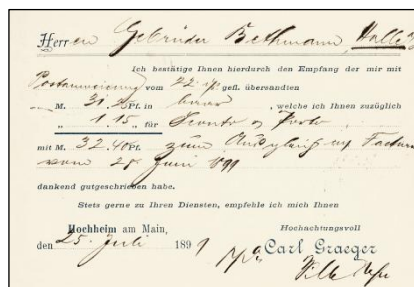 Herren Gebrüder Bethmann, Halle
Ich bestätige Ihnen hierdurch den Empfang der mir mit
Postanweisung vom 22 gefl. übersandten
M. 31.25 Pf. in baar, welche ich Ihnen zuzüglich
" 1.15 " für Sconto & Porto
mit M. 32.40 Pf. zum Ausgleich Factura
vom 28 Juni 1899
dankend gutgeschrieben habe.
Stets gerne zu Ihren Diensten, empfehle ich mich Ihnen
Hochheim am Main, Hochachtungsvoll
den 25. Juli 1899 ppa Carl Graeger